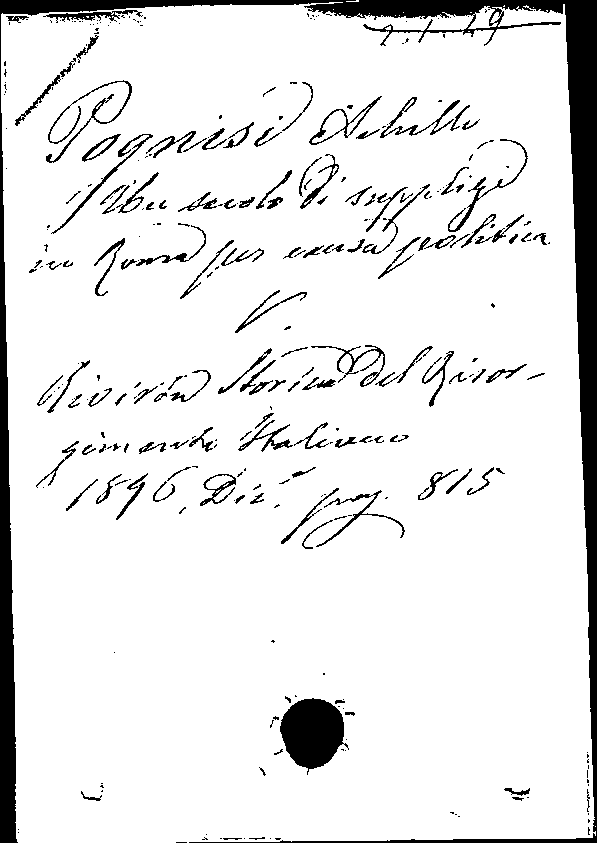 2.1.49
Pognisi Achille
Un secolo di supplizi
in Roma per causa politica
V.
Rivista Storica del Risor-
gimento Italiano
1896, Dic. pag. 815